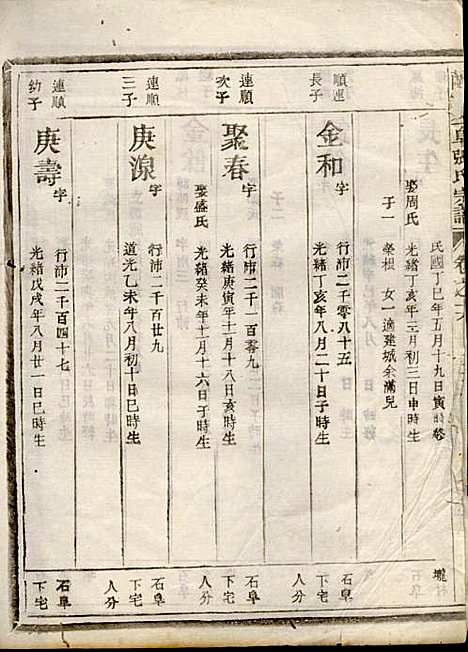 民國丁巳年五月十九日寅時歿
娶周氏 光緒丁亥年三月初三日申時生
子一 榮根 女一適建城余滿兒
順連長子 金和 字 行沛二千零八十五
光緒丁亥年八月二十日子時生
石阜下宅人分
連順次子 聚春 字 行沛二千一百零九
光緒庚寅年十一月十八日亥時生
娶盛氏 光緒癸未年十一月十六日子時生
石阜下宅人分
連順三子 庚源 字 行沛二千百廿九
道光乙未年八月初十日巳時生
石阜下宅人分
連順幼子 庚壽 字 行沛二千百四十七
光緒戊戌年八月廿一日巳時生
石阜下宅